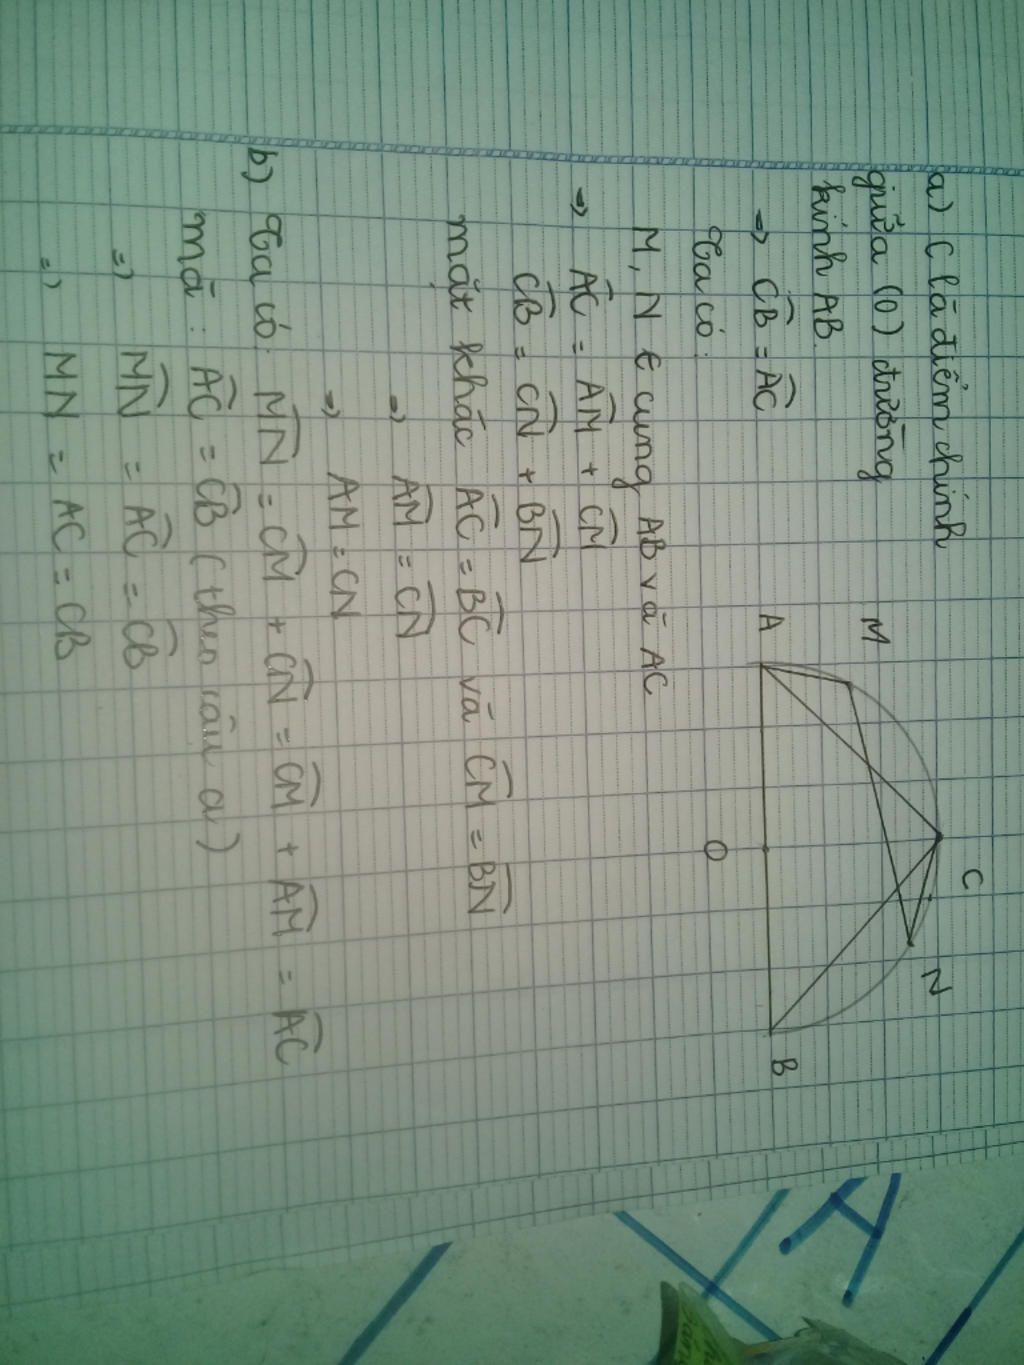 a) C là điểm chính
giữa (O) đường
kính AB.
=> C͡B = A͡C
Ta có:
M, N ∈ cung AB và AC
=> A͡C = A͡M + C͡M
C͡B = C͡N + B͡N
mặt khác A͡C = B͡C và C͡M = B͡N
=> A͡M = C͡N
=> AM = CN
b) Ta có: M͡N = C͡M + C͡N = C͡M + A͡M = A͡C
mà: A͡C = C͡B (theo câu a)
=> M͡N = A͡C = C͡B
=> MN = AC = CB
A
M
C
N
B
O